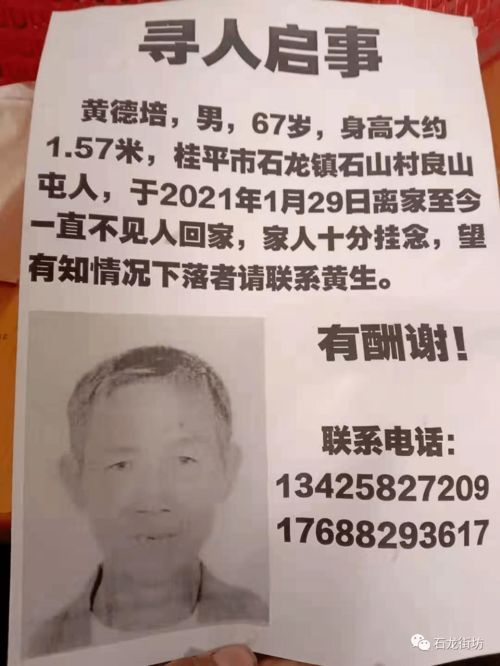 寻人启事
黄德培，男，67岁，身高大约
1.57米，桂平市石龙镇石山村良山
屯人，于2021年1月29日离家至今
一直不见人回家，家人十分挂念，望
有知情况下落者请联系黄生。
有酬谢！
联系电话：
13425827209
17688293617
石龙街坊